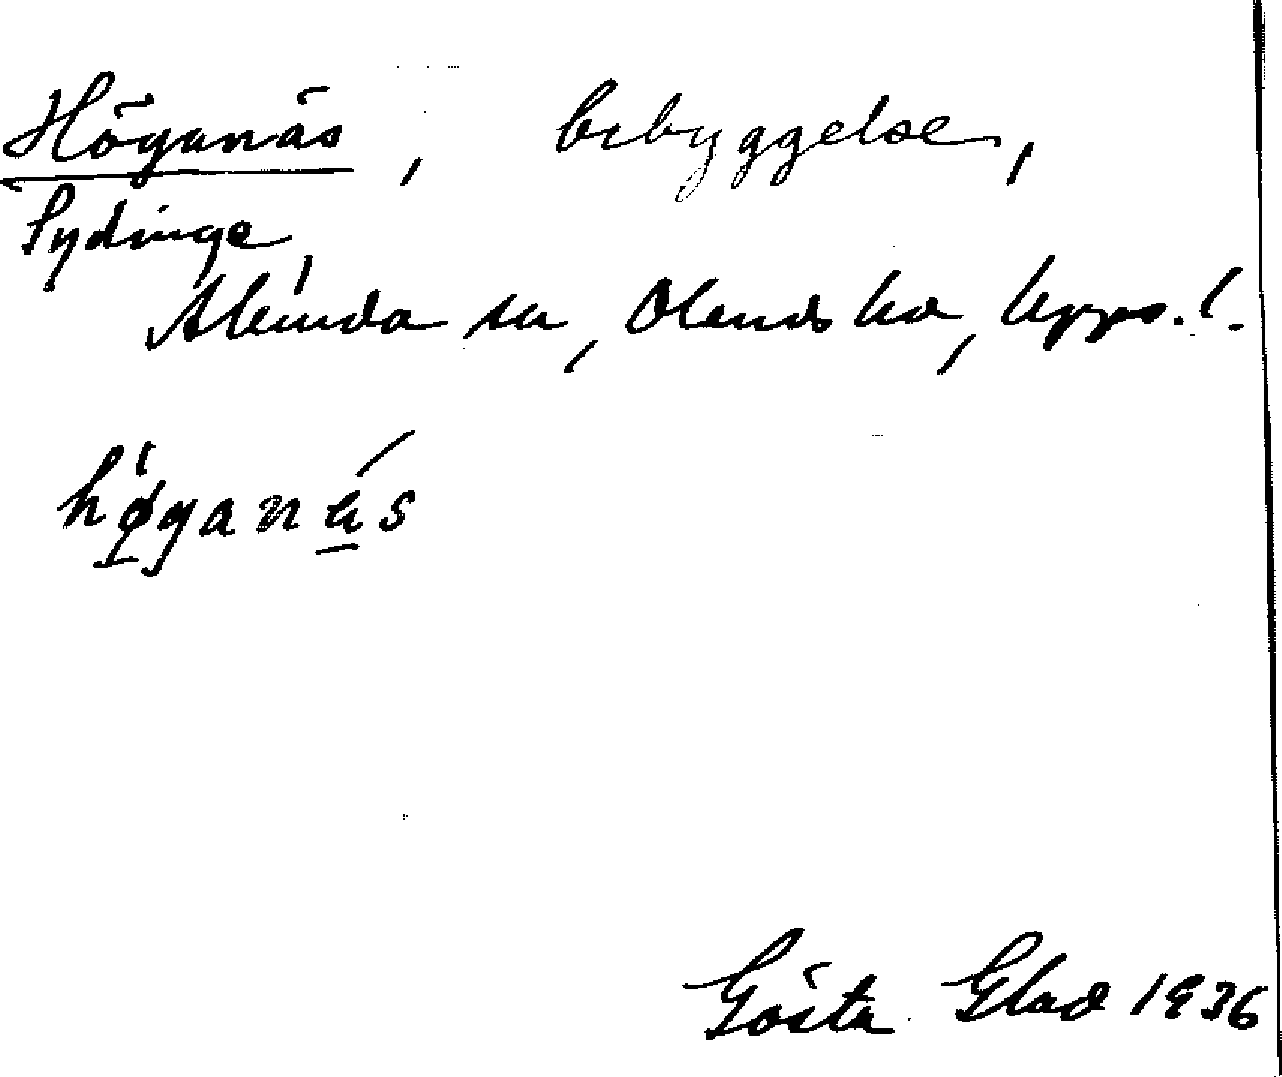 Höganäs, bebyggelse,
Sydinge,
Alunda sn, Olands hd, Upps. l.
høganäs
Gösta Glad 1936